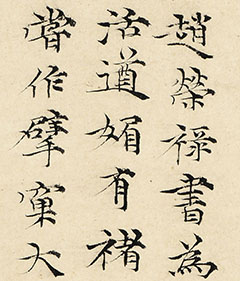 趙榮祿書為
活遒媚有褚
嘗作擘窠大